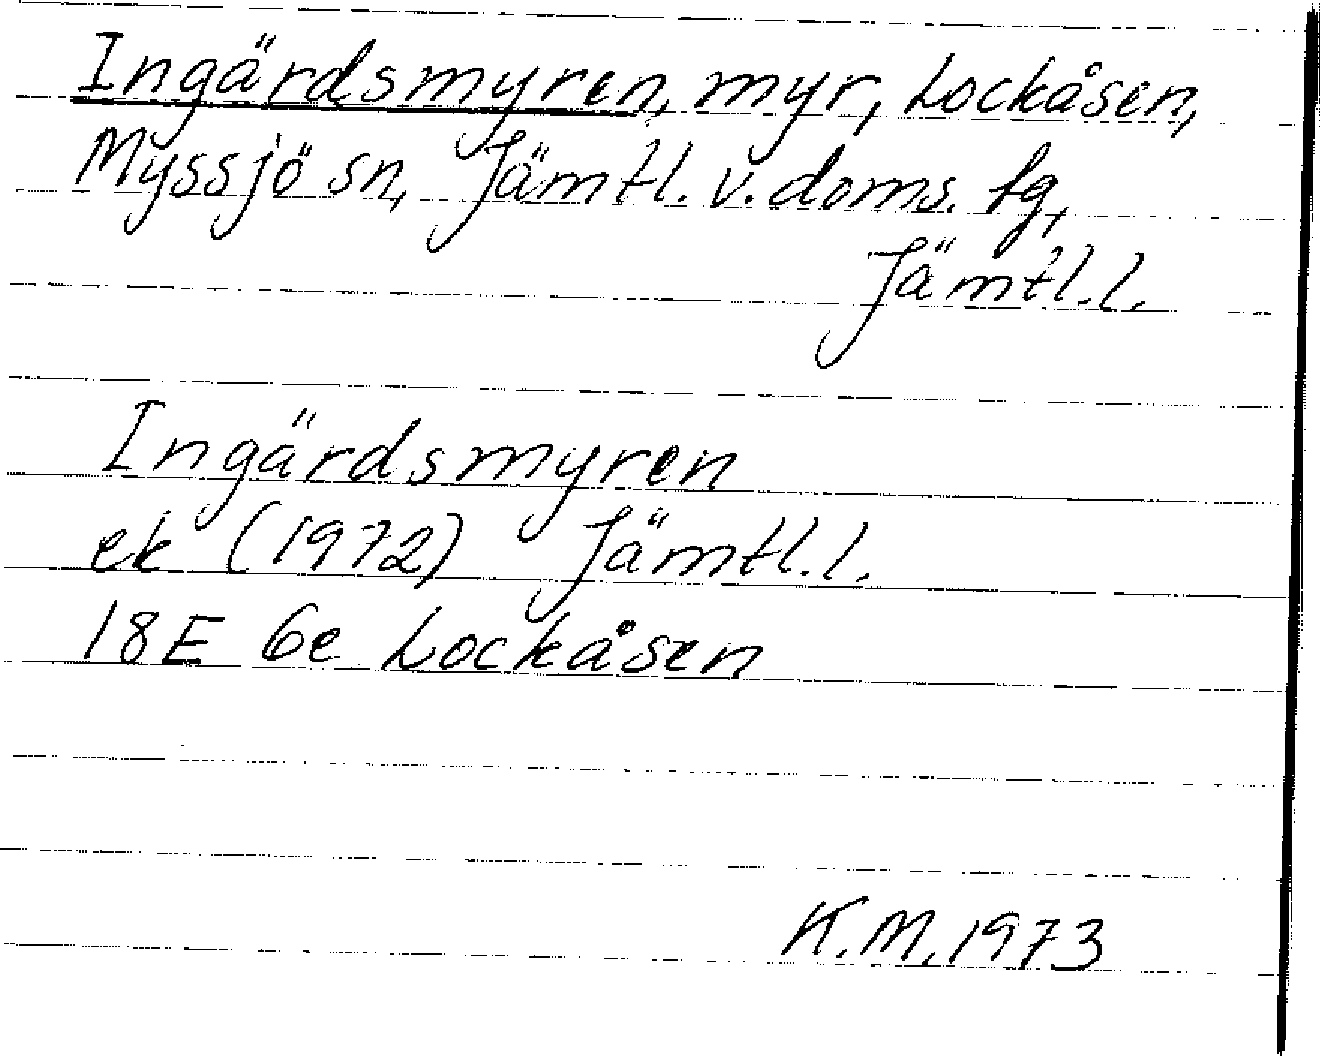 Ingärdsmyren, myr, Lockåsen,
Myssjö sn, Jämtl. v. doms. tg,
Jämtl. l.
Ingärdsmyren
ek (1972) Jämtl. l.
18E 6e Lockåsen
K.M. 1973